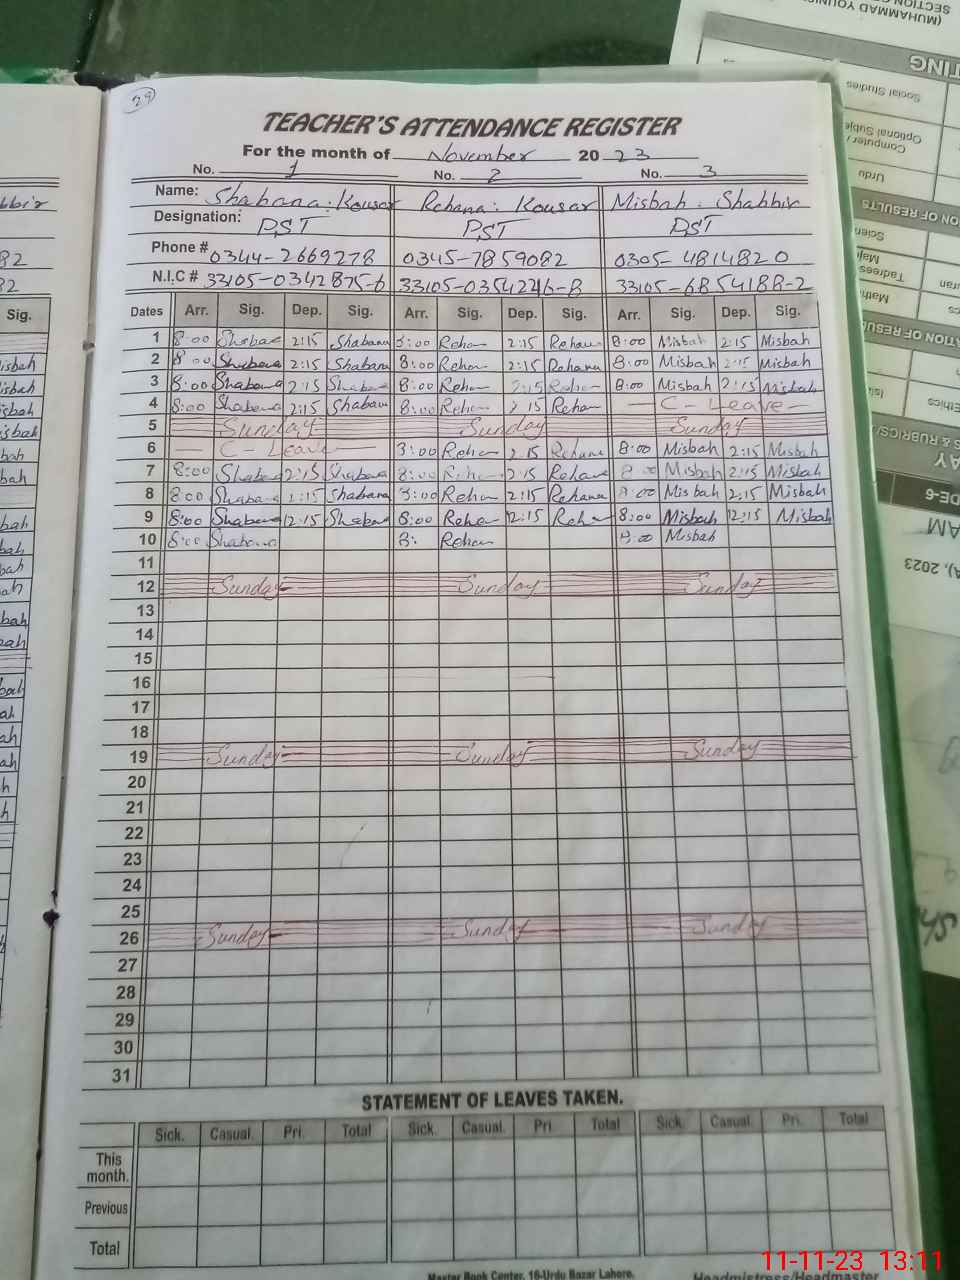 29
TEACHER'S ATTENDANCE REGISTER
For the month of November 2023
No. 1 No. 2 No. 3
Name: Shabana: Kousar Rehana: Kousar Misbah: Shabbir
Designation: PST PST PST
Phone # 0344-2669278 0345-7859082 0305-4814820
N.I.C # 33105-0342875-6 33105-0354246-8 33105-6854188-2
Dates Arr. Sig. Dep. Sig. Arr. Sig. Dep. Sig. Arr. Sig. Dep. Sig.
1 8:00 Shabana 2:15 Shabana 8:00 Rehan 2:15 Rehana 8:00 Misbah 2:15 Misbah
2 8:00 Shabana 2:15 Shabana 8:00 Rehan 2:15 Rehana 8:00 Misbah 2:15 Misbah
3 8:00 Shabana 2:15 Shabana 8:00 Rehan 2:15 Rehan 8:00 Misbah 2:15 Misbah
4 8:00 Shabana 2:15 Shabana 8:00 Rehan 2:15 Rehan — C-Leave —
5 Sunday Sunday Sunday
6 — C-Leave 8:00 Rehan 2:15 Rehana 8:00 Misbah 2:15 Misbah
7 8:00 Shabana 2:15 Shabana 8:00 Rehan 2:15 Rehana 8:00 Misbah 2:15 Misbah
8 8:00 Shabana 2:15 Shabana 8:00 Rehan 2:15 Rehana 8:00 Misbah 2:15 Misbah
9 8:00 Shabana 12:15 Shabana 8:00 Rehan 12:15 Rehan 8:00 Misbah 12:15 Misbah
10 8:00 Shabana 8: Rehan 8:00 Misbah
11
12 Sunday Sunday Sunday
13
14
15
16
17
18
19 Sunday Sunday Sunday
20
21
22
23
24
25
26 Sunday Sunday Sunday
27
28
29
30
31
STATEMENT OF LEAVES TAKEN.
Sick. Casual. Pri. Total Sick. Casual. Pri. Total Sick. Casual. Pri. Total
This
month.
Previous
Total
Master Book Center, 16-Urdu Bazar Lahore.
Headmistress/Headmaster
11-11-23 13:11
Sig.
(MUHAMMAD YOUNIS
Social Studies
Optional Subje
Computer /
Urdu
ON OF RESULTS